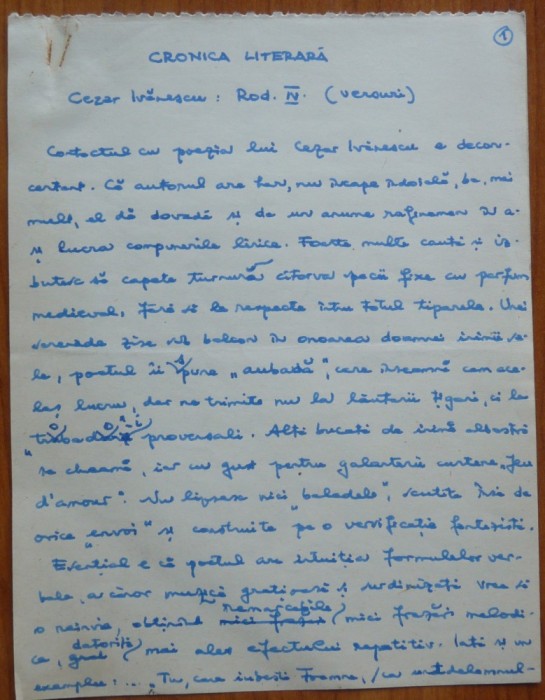 1
CRONICA LITERARĂ
Cezar Ivănescu: Rod. IV. (versuri)
Contactul cu poezia lui Cezar Ivănescu e decon-
certant. Că autorul are har, nu încape îndoială, ba, mai
mult, el dă dovadă și de un anume rafinament în a-
și lucra compunerile lirice. Foarte multe caută și iz-
butesc să capete turnură câtorva piese fixe cu parfum
medieval, fără să le respecte întru totul tiparele. Unei
serenade zise sub balcon în onoarea doamnei inimii sa-
le, poetul îi spune „aubadă”, care înseamnă cam ace-
laș lucru, dar ne trimite nu la lăutarii țigani, ci la
provensali. Alte bucăți de inimă albastră
se cheamă, iar cu gust pentru galanterii curtene „Jeu
d'amour”. Nu lipsesc nici "baladele", scutite însă de
orice "envoi" și construite pe o versificație fantezistă.
Esențial e că poetul are intuiția formulelor ver-
bale, a căror muzică grațioasă și surdinizată vrea să
o reînvie, obținând remarcabile mici frazări melodi-
ce, datorită mai ales efectului repetitiv. Iată și un
exemplu: ... „Tu, care iubești Foamne, / ca